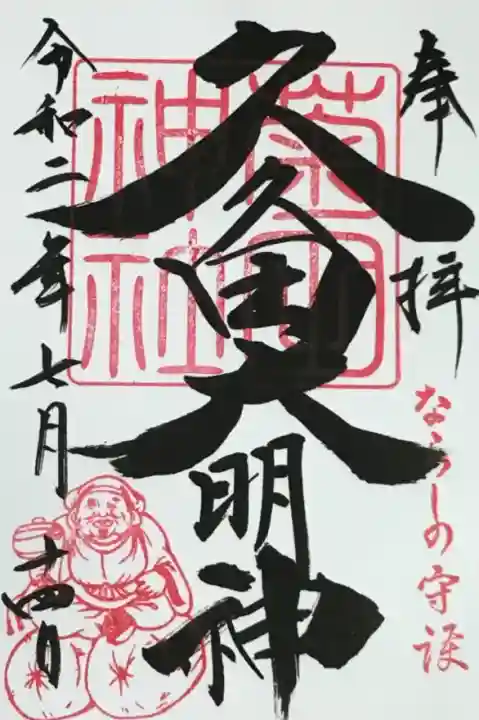 奉拝
ならしの守護
菊田
神社
久久田大明神
令和二年七月十四日